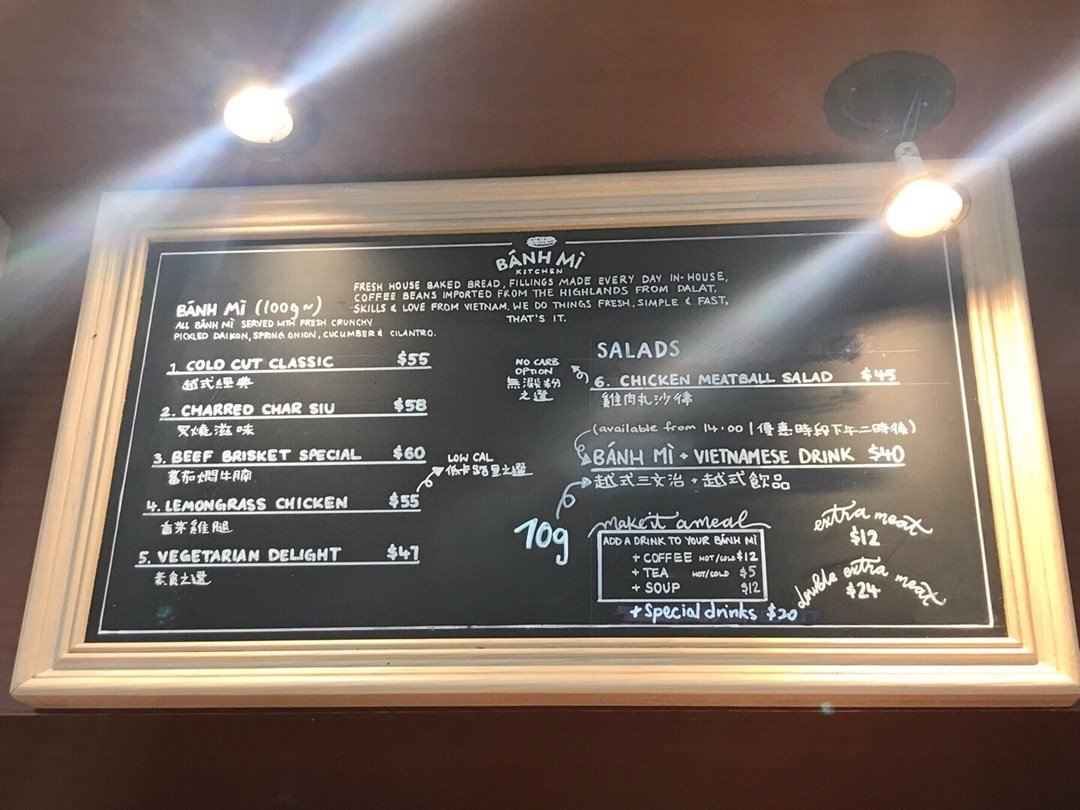 BÁNH MÌ
KITCHEN
FRESH HOUSE BAKED BREAD, FILLINGS MADE EVERY DAY IN-HOUSE,
COFFEE BEANS IMPORTED FROM THE HIGHLANDS FROM DALAT,
SKILLS & LOVE FROM VIETNAM. WE DO THINGS FRESH, SIMPLE & FAST,
THAT'S IT.
BÁNH MÌ (100g~)
ALL BÁNH MÌ SERVED WITH FRESH CRUNCHY
PICKLED DAIKON, SPRING ONION, CUCUMBER & CILANTRO.
1. COLD CUT CLASSIC $55
越式經典
2. CHARRED CHAR SIU $58
叉燒滋味
3. BEEF BRISKET SPECIAL $60
蕃茄燜牛腩
LOW CAL
低卡路里之選
4. LEMONGRASS CHICKEN $55
香茅雞腿
5. VEGETARIAN DELIGHT $47
素食之選
SALADS
NO CARB
OPTION
無澱粉
之選
6. CHICKEN MEATBALL SALAD $45
雞肉丸沙律
(available from 14:00 | 優惠時段下午二時後)
BÁNH MÌ + VIETNAMESE DRINK $40
越式三文治 + 越式飲品
70g
make it a meal
ADD A DRINK TO YOUR BÁNH MÌ
+ COFFEE HOT/COLD $12
+ TEA HOT/COLD $5
+ SOUP $12
+ Special drinks $20
extra meat
$12
double extra meat
$24